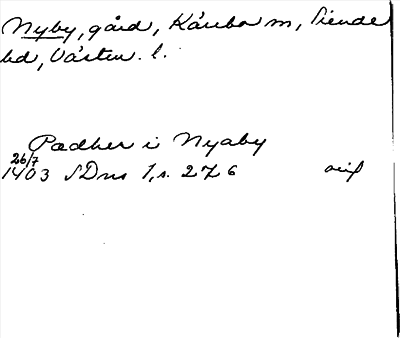 Nyby, gård, Kärrbo sn, Siende
hd, Västm. l.
Padher i Nyaby
26/7
1403 SDns 1, s. 276 orig